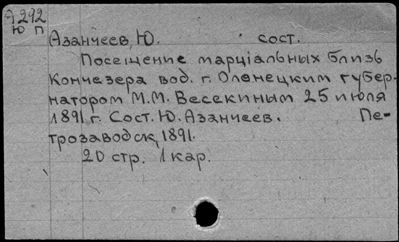 А 292
Ю П
Азанчеев, Ю. сост.
Посещение марціальных близь
Кончезера вод. г. Олонецким губер-
натором М.М. Весекиным 25 июля
1891 г. Сост. Ю. Азанчеев. Пе-
трозаводск, 1891.
20 стр. 1 кар.